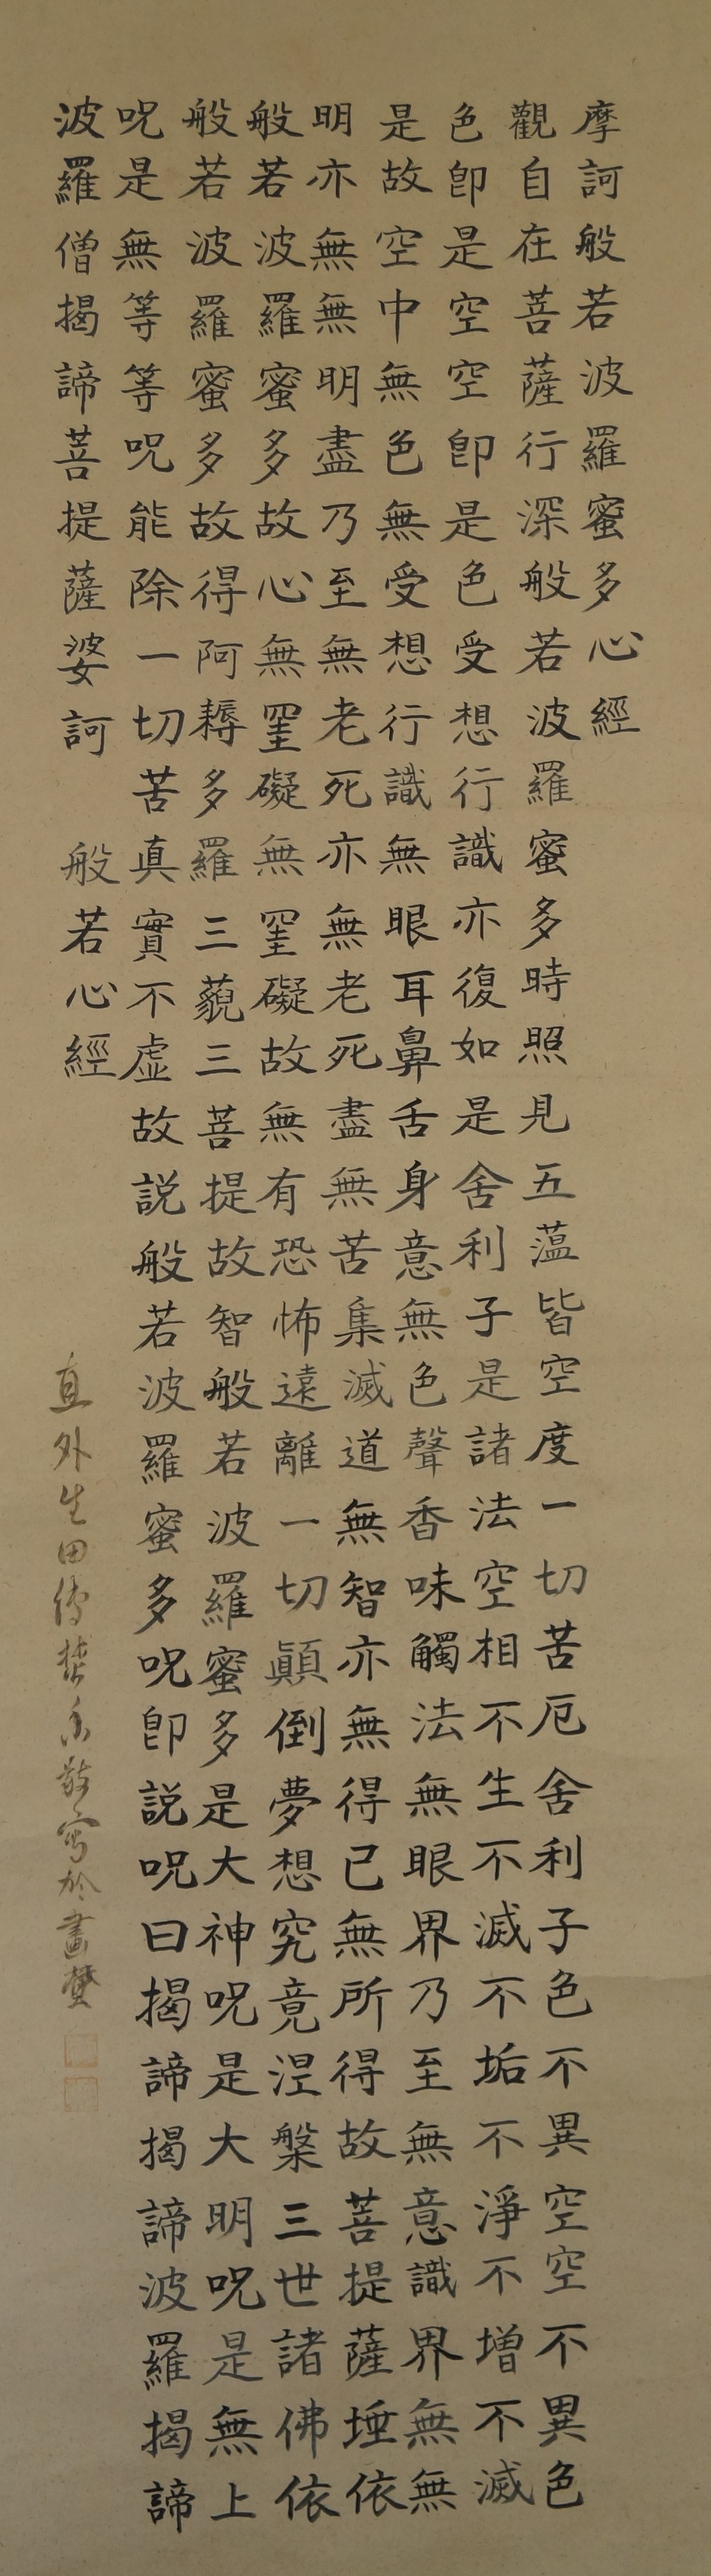 摩訶般若波羅蜜多心經
觀自在菩薩行深般若波羅蜜多時照見五薀皆空度一切苦厄舍利子色不異空空不異色
色卽是空空卽是色受想行識亦復如是舍利子是諸法空相不生不滅不垢不淨不增不滅
是故空中無色無受想行識無眼耳鼻舌身意無色聲香味觸法無眼界乃至無意識界無無
明亦無無明盡乃至無老死亦無老死盡無苦集滅道無智亦無得已無所得故菩提薩埵依
般若波羅蜜多故心無罣礙無罣礙故無有恐怖遠離一切顚倒夢想究竟涅槃三世諸佛依
般若波羅蜜多故得阿耨多羅三藐三菩提故智般若波羅蜜多是大神呪是大明呪是無上
呪是無等等呪能除一切苦真實不虚故説般若波羅蜜多呪卽説呪曰揭諦揭諦波羅揭諦
波羅僧揭諦菩提薩婆訶 般若心經
直外生田傳焚香敬寫於畫